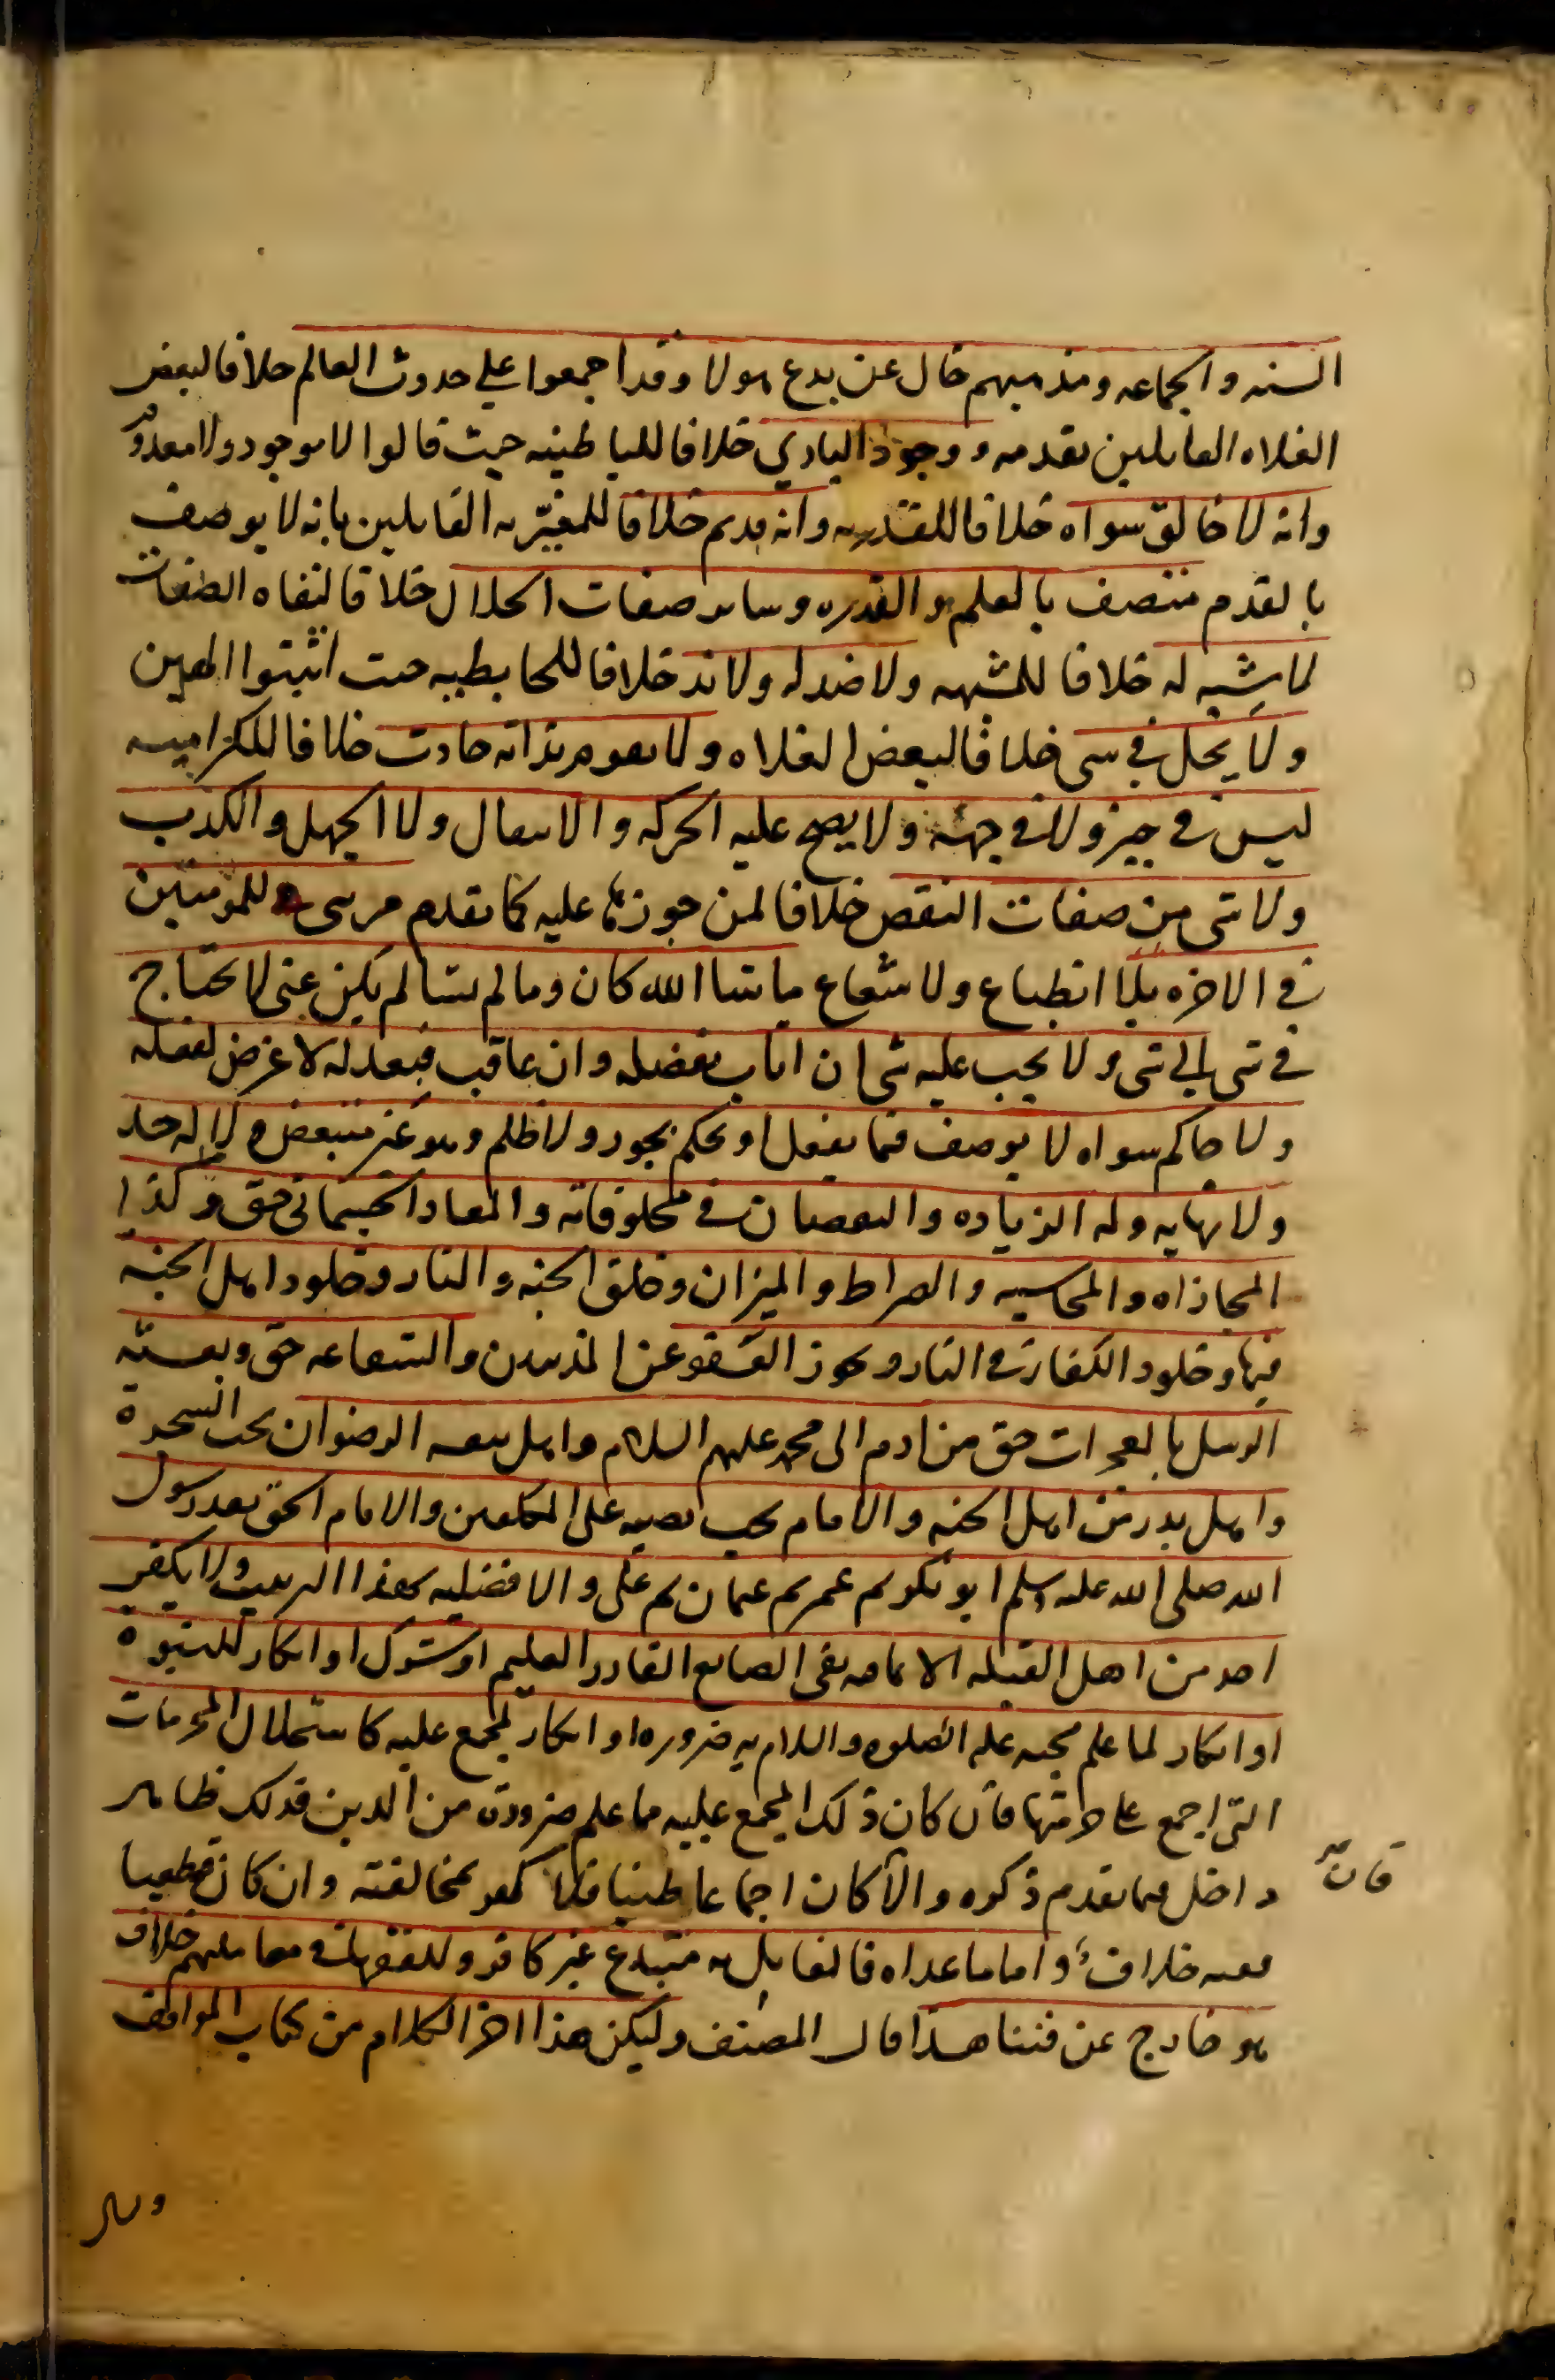 السنه والجماعه ومذهبهم خال عن بدع هولا وقد اجمعوا علي حدوث العالم خلافا لبعض
الغلاه القايلين بقدمه ووجود الباري خلافا للباطنيه حيث قالوا لا موجود ولا معدوم
وانه لا خالق سواه خلافا للقدريه وانه قديم خلافا للمعمريه القايلين بانه لا يوصف
بالقدم متصف بالعلم والقدره وساير صفات الجلال خلافا لنفاه الصفات
لا شبيه له خلافا للمشبهه ولا ضد له ولا ند خلافا للحابطيه حيث اثبتوا الهين
ولا يحل في شي خلافا لبعض الغلاه ولا يقوم بذاته حادث خلافا للكراميه
ليس في حيز ولا في جهة ولا يصح عليه الحركه والانتقال ولا الجهل والكذب
ولا شي من صفات النقص خلافا لمن جوزها عليه كما تقدم مرىى للمومنين
في الاخره بلا انطباع ولا شعاع ما شا الله كان وما لم يشا لم يكن غني لا يحتاج
في شي الي شي ولا يجب عليه شي ان اثاب بفضله وان عاقب فبعدله لا غرض لفعله
ولا حاكم سواه لا يوصف فيما يفعل او يحكم بجور ولا ظلم وهو غير متبعض ولا له حد
ولا نهايه وله الزياده والنقصان في مخلوقاته والمعاد الجسماني حق وكذا
المجازاه والمحاسبه والصراط والميزان وخلق الجنه والنار وخلود اهل الجنه
فيها وخلود الكفار في النار ويجوز العفو عن المذنبين والشفاعه حق وبعثة
الرسل بالمعجزات حق من ادم الى محمد عليهم السلام واهل بيعه الرضوان تحت الشجرة
واهل بدر من اهل الجنه والامام يجب نصبه على المكلفين والامام الحق بعد رسول
الله صلى الله عليه وسلم ابو بكر ثم عمر ثم عثمان ثم على والافضليه بهذا الترتيب ولا يكفر
احد من اهل القبله الا بما فيه نفى الصانع القادر العليم او شرك او انكار للنبوة
او انكار لما علم مجيه عليه الصلوه والسلام به ضروره او انكار لمجمع عليه كاستحلال المحرمات
التي اجمع على حرمتها فان كان ذلك المجمع عليه مما علم ضرورة من الدين فذلك ظاهر
داخل فيما تقدم ذكره والا كان اجماعا ظنيا فلا كفر بمخالفته وان كان قطعيا
ففيه خلاف واما ما عداه فالقايل به مبتدع غير كافر وللفقها في معاملتهم خلاف
هو خارج عن فننا هذا قال المصنف وليكن هذا اخر الكلام من كتاب المواقف
فان